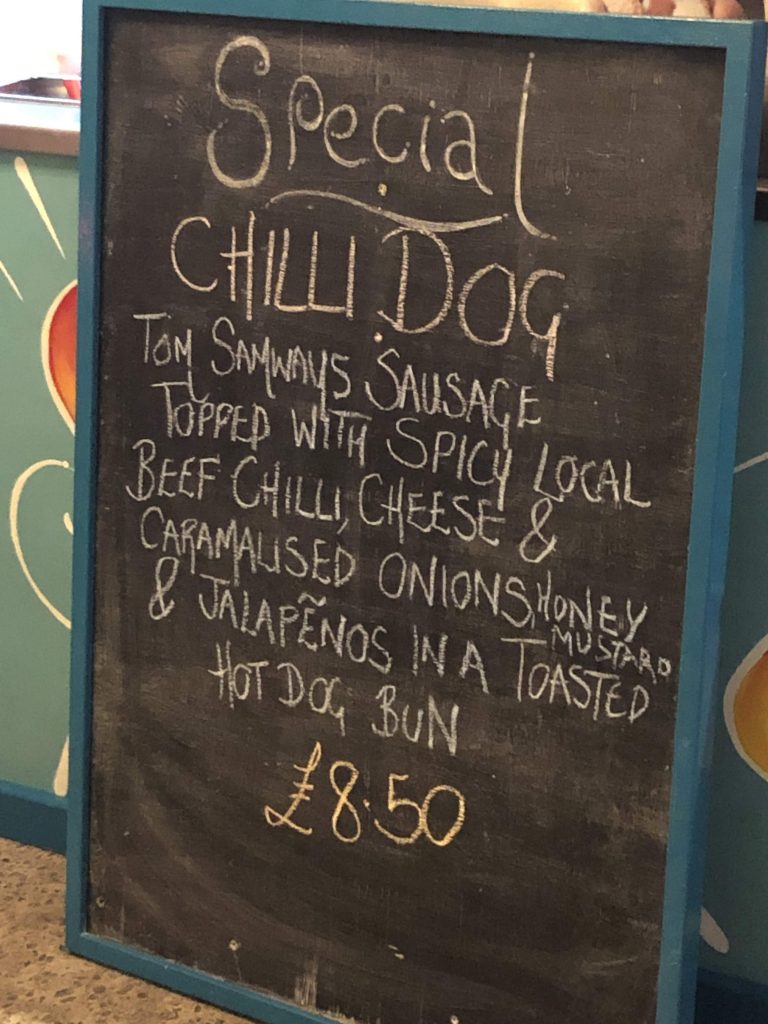 Special
CHILLI DOG
TOM SAMWAYS SAUSAGE
TOPPED WITH SPICY LOCAL
BEEF CHILLI, CHEESE &
CARAMALISED ONIONS, HONEY MUSTARD
& JALAPEÑOS IN A TOASTED
HOT DOG BUN
£8.50